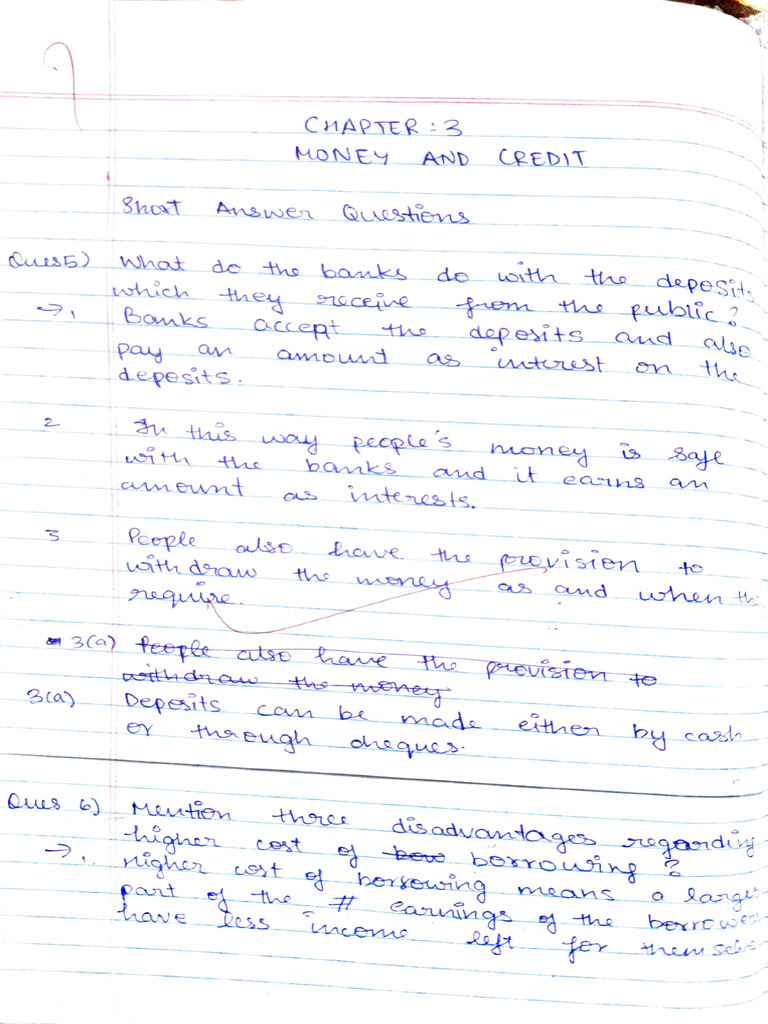 CHAPTER : 3
MONEY AND CREDIT
Short Answer Questions
Ques5) What do the banks do with the deposits
which they receive from the public?
→ 1. Banks accept the deposits and also
pay an amount as interest on the
deposits.
2 In this way people's money is safe
with the banks and it earns an
amount as interests.
3 People also have the provision to
withdraw the money as and when th
require.
3(a) People also have the provision to
withdraw the money
3(a) Deposits can be made either by cash
or through cheques.
Ques 6) Mention three disadvantages regarding
higher cost of bow borrowing?
→ 1. Higher cost of borrowing means a large
part of the # earnings of the borrower
have less income left for themselve